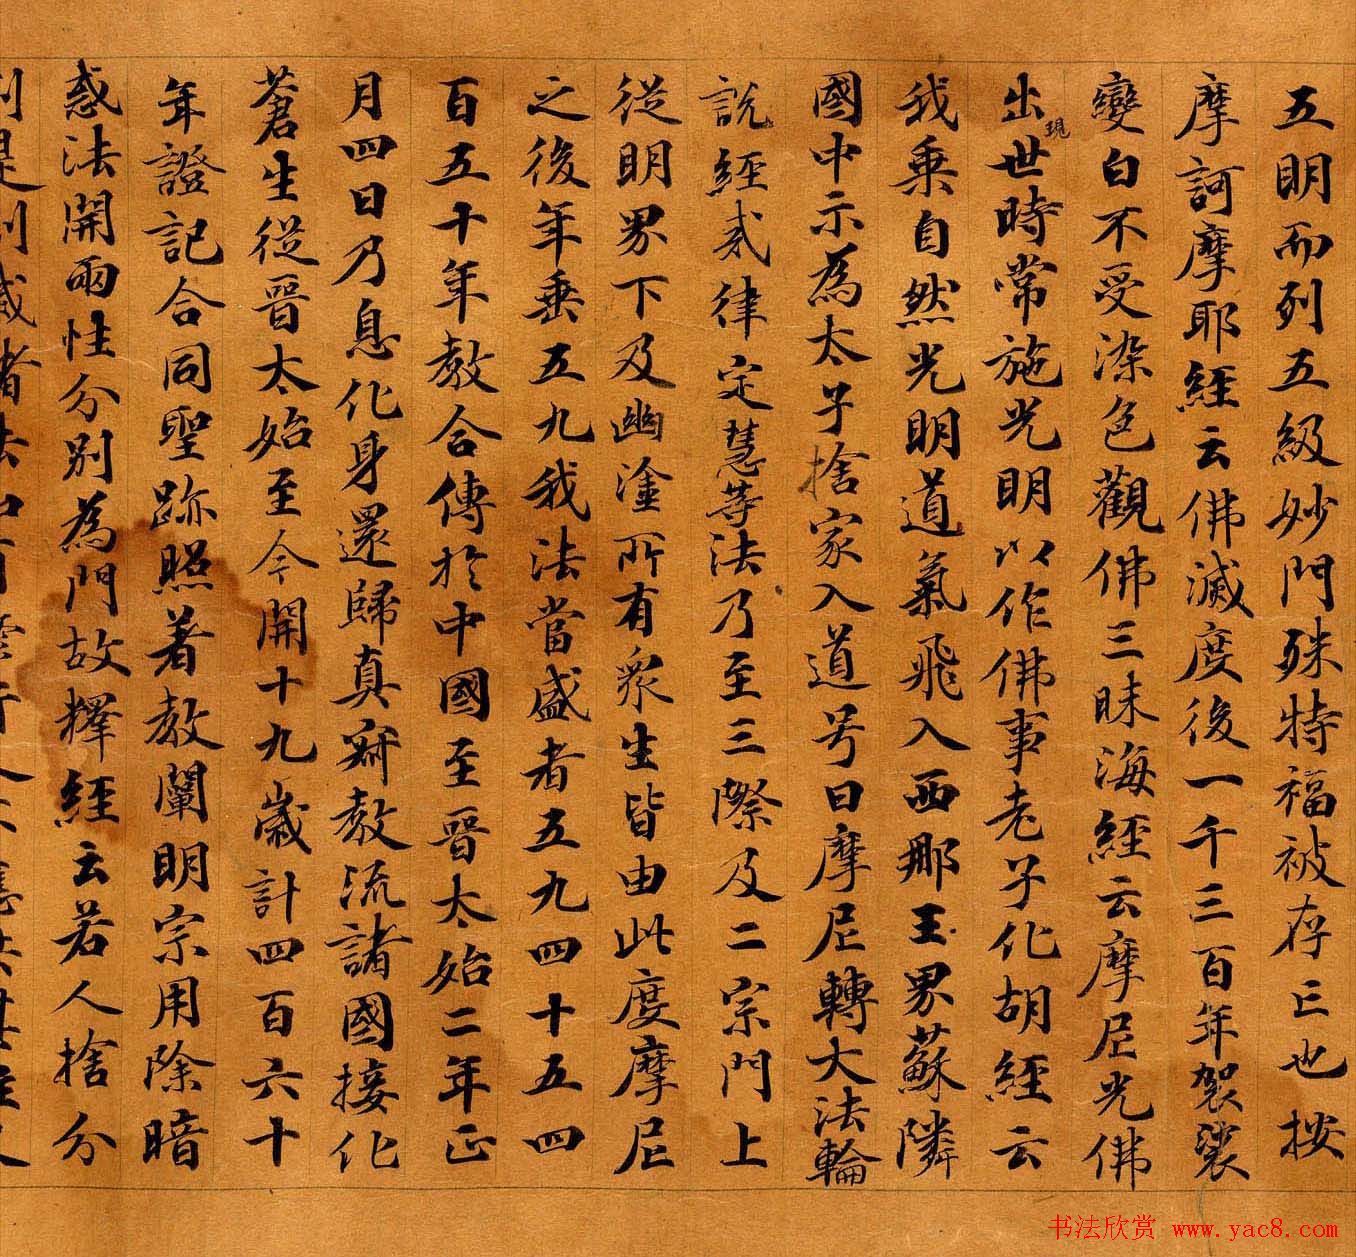 五明而列五級妙門殊特福被存亡也按
摩訶摩耶經云佛滅度後一千三百年袈裟
變白不受染色觀佛三昧海經云摩尼光佛
出現世時常施光明以作佛事老子化胡經云
我乘自然光明道氣飛入西那玉界蘇隣
國中示為太子捨家入道号曰摩尼轉大法輪
說經戒律定慧等法乃至三際及二宗門上
從明界下及幽塗所有衆生皆由此度摩尼
之後年垂五九我法當盛者五九四十五四
百五十年教合傳於中國至晉太始二年正
月四日乃息化身還歸真寂教流諸國接化
蒼生從晉太始至今開十九歲計四百六十
年證記合同聖跡照著教闡明宗用除暗
惑法開兩性分別為門故釋經云若人捨分
書法欣赏 www.yac8.com